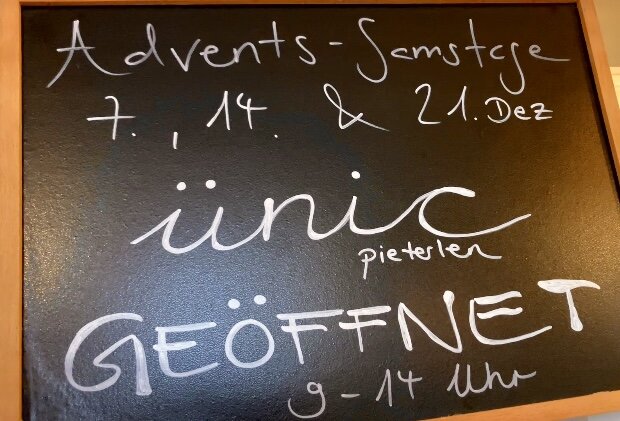 Advents-Samstage
7., 14. & 21. Dez
ünic
pieterlen
GEÖFFNET
9-14 Uhr